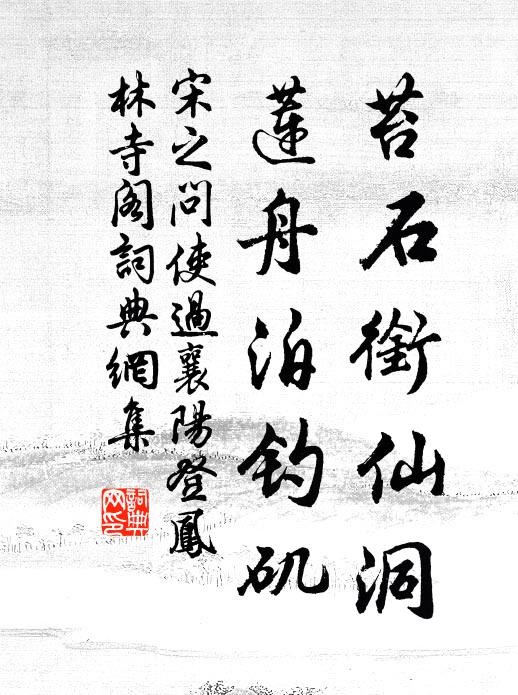 苔石銜仙洞
蓮舟泊钓矶
宋之问使過襄陽登鳳
林寺阁詞典網集
詞典
网印